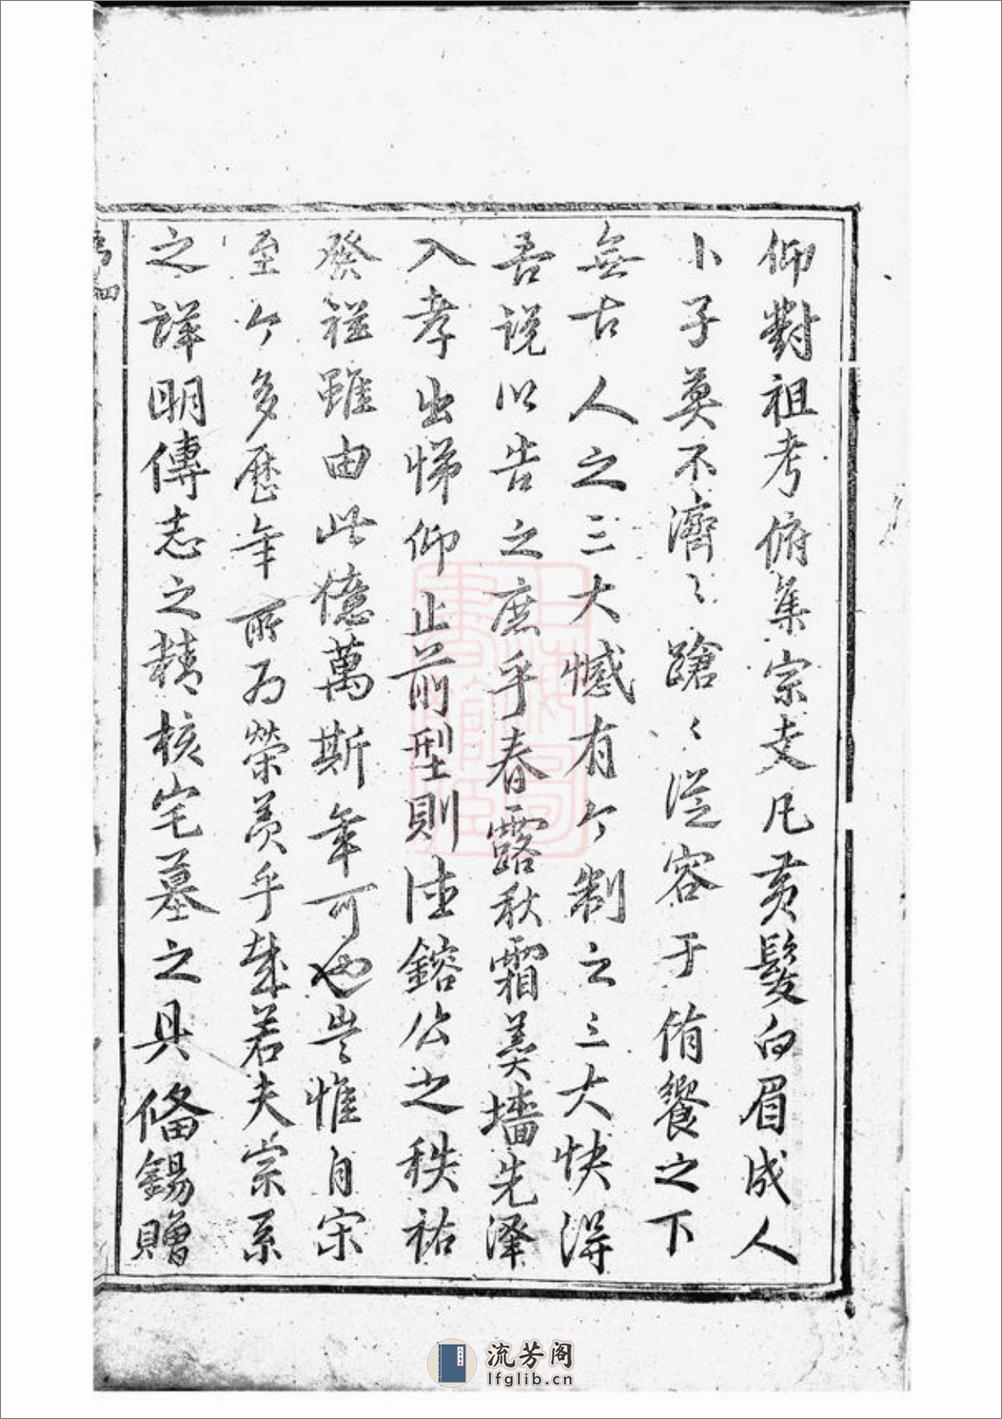 仰對祖考俯集宗支凡黃髮白眉成人
小子莫不濟〻蹌〻從容于侑饗之下
無古人之三大憾有今制之三大快得
吾說以告之庶乎春露秋霜羹墻先澤
入孝出悌仰止前型則法鎔公之秩祐
發祥雖由此億萬斯年可也豈惟自宋
至今多歷年所為榮羨乎哉若夫宗系
之詳明傳志之精核宅墓之具備錫贈
流芳阁
lfglib.cn